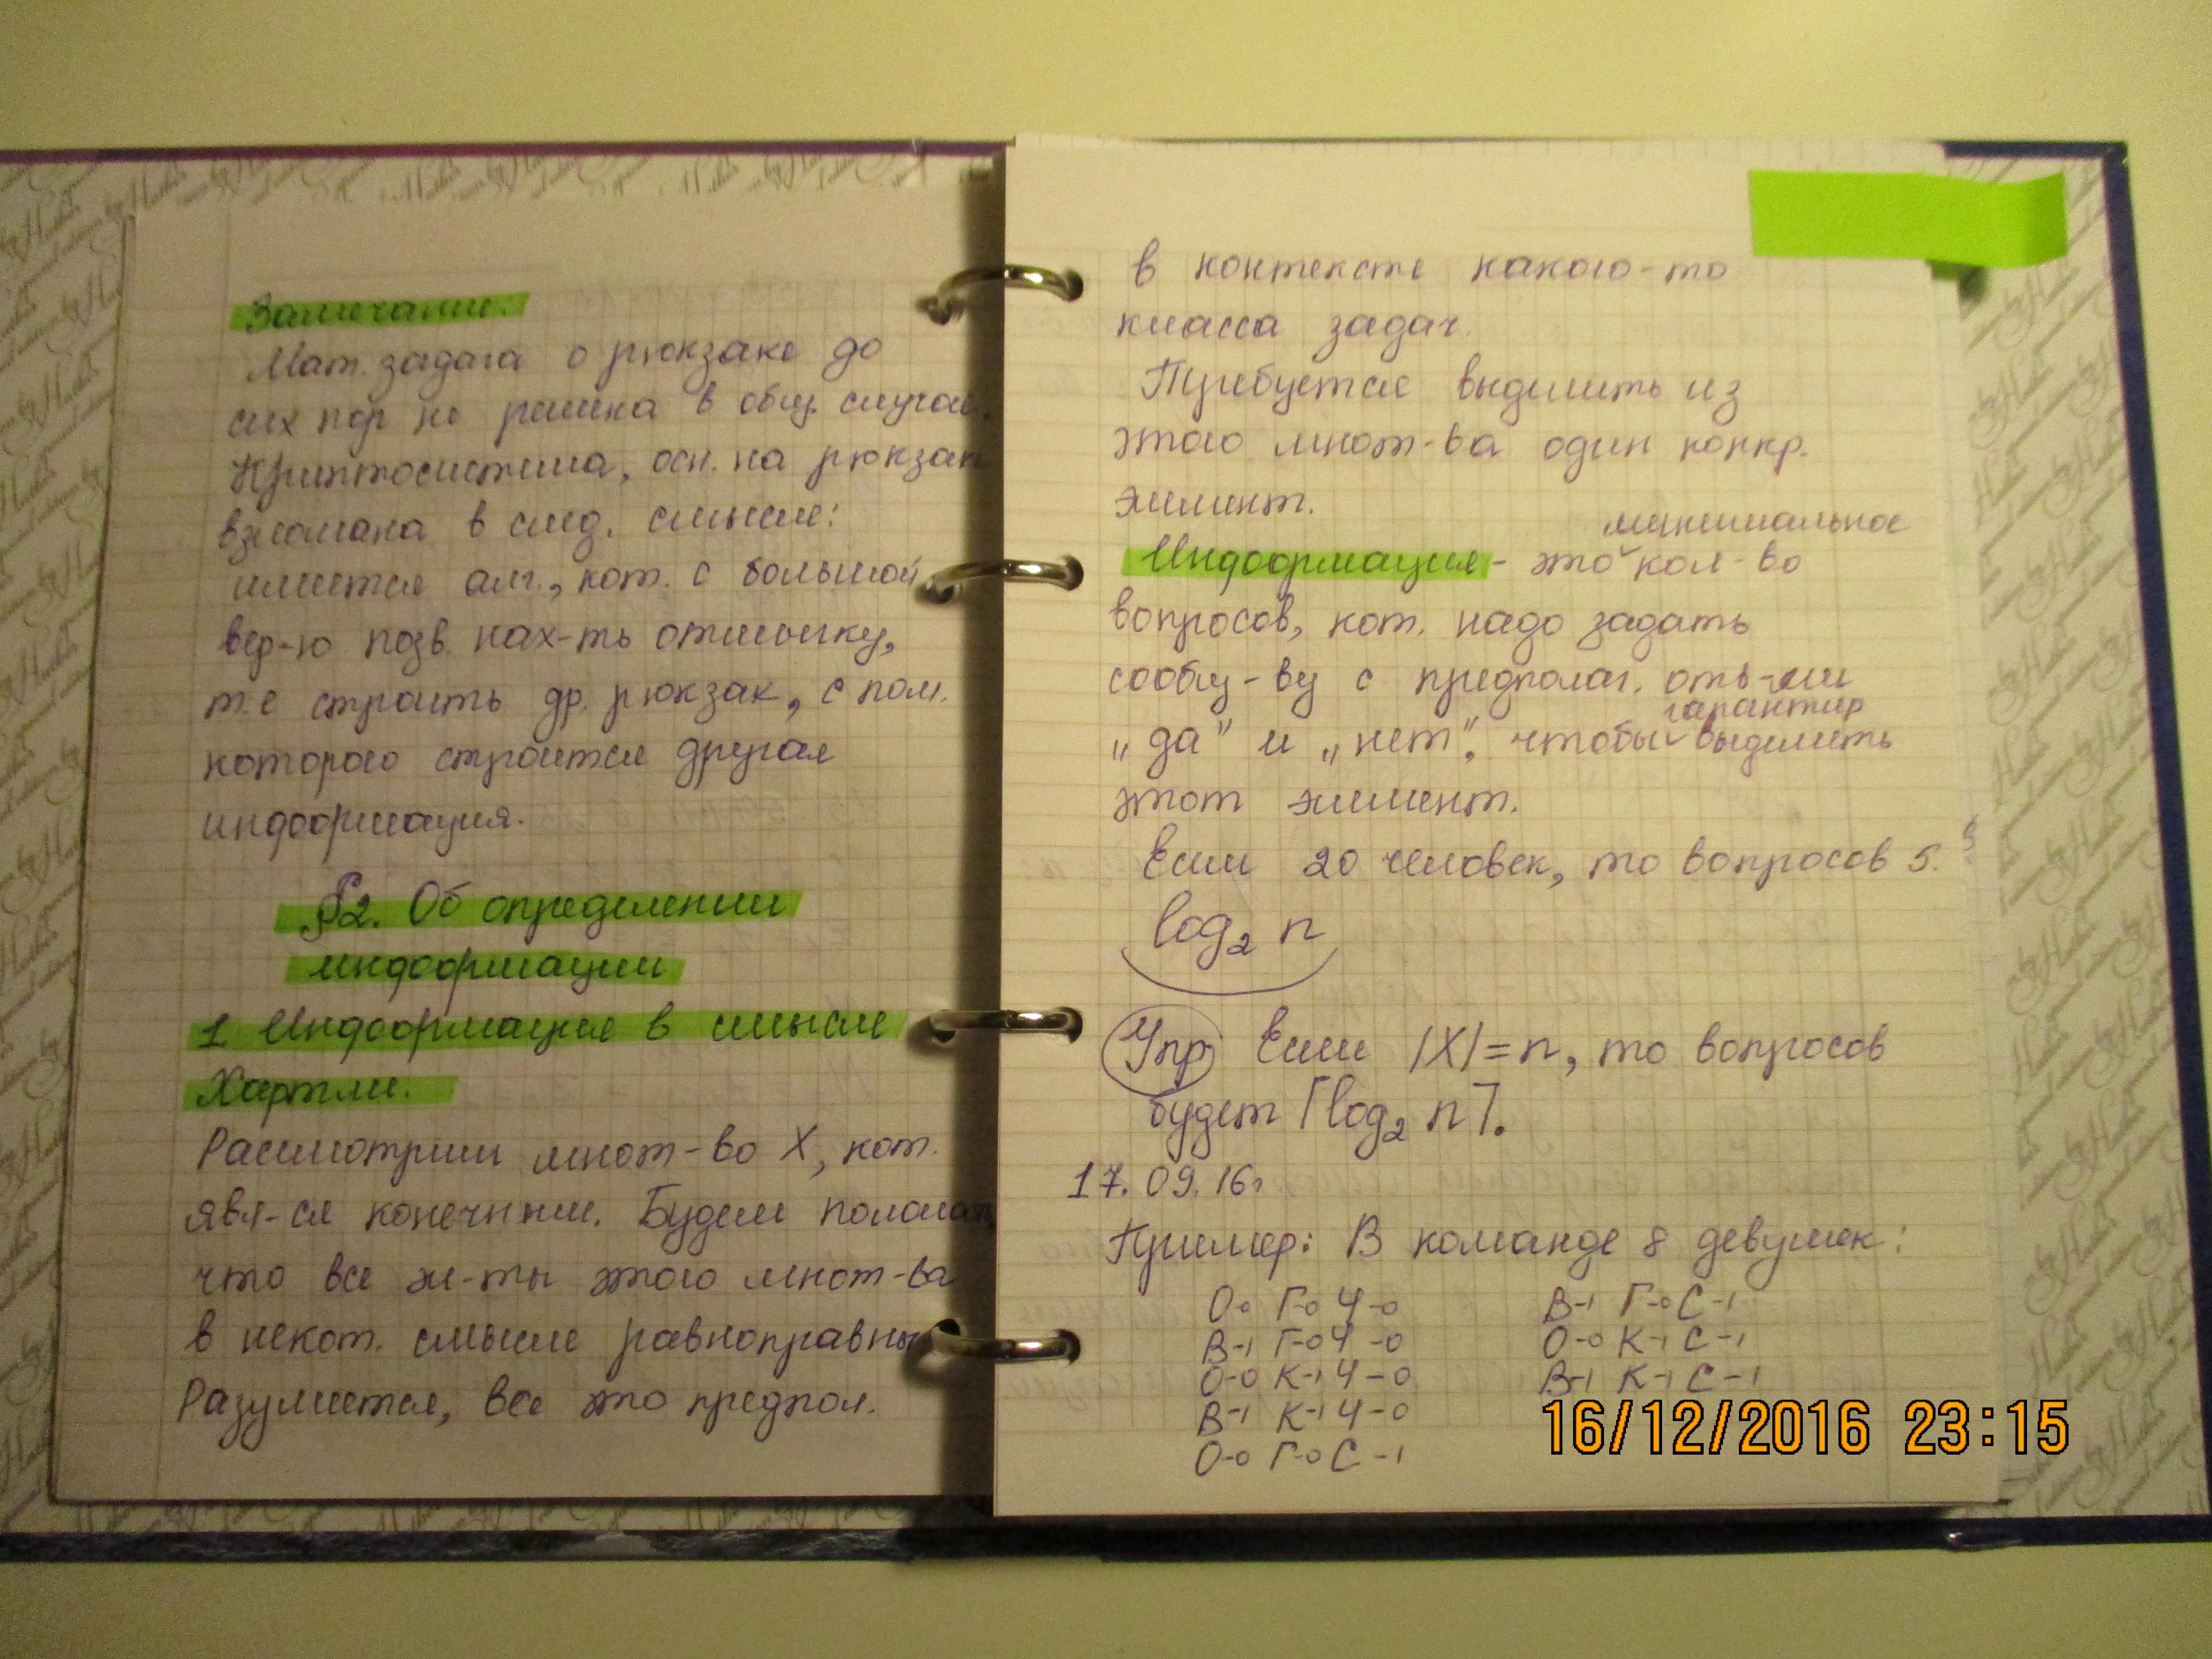 Замечание:
Мат. задача о рюкзаке до
сих пор не решена в общ. случае.
Криптосистема, осн. на рюкзак
взломана в след. смысле:
имеется алг., кот. с большой
вер-ю позв. нах-ть отмычку,
т.е строить др. рюкзак, с пом.
которого строится другая
информация.
§2. Об определении
информации
1 Информация в смысле
Хартли.
Рассмотрим множ-во X, кот.
явл-ся конечным. Будем полагать,
что все эл-ты этого множ-ва
в некот. смысле равноправны
Разумеется, все это предпол.
в контексте какого-то
класса задач.
Требуется выделить из
этого множ-ва один конкр.
элемент.
минимальное
Информация - это кол-во
вопросов, кот. надо задать
сообщ-ву с предполаг. отв-ми
„да" и „нет", чтобы выделить
гарантир
этот элемент.
Если 20 человек, то вопросов 5.
log₂ n
Упр Если |X|=n, то вопросов
будет ⌈log₂ n⌉.
17.09.16г
Пример: В команде 8 девушек:
О-0 Г-0 Ч-0
В-1 Г-0 Ч-0
О-0 К-1 Ч-0
В-1 К-1 Ч-0
О-0 Г-0 С-1
В-1 Г-0 С-1
О-0 К-1 С-1
В-1 К-1 С-1
16/12/2016 23:15